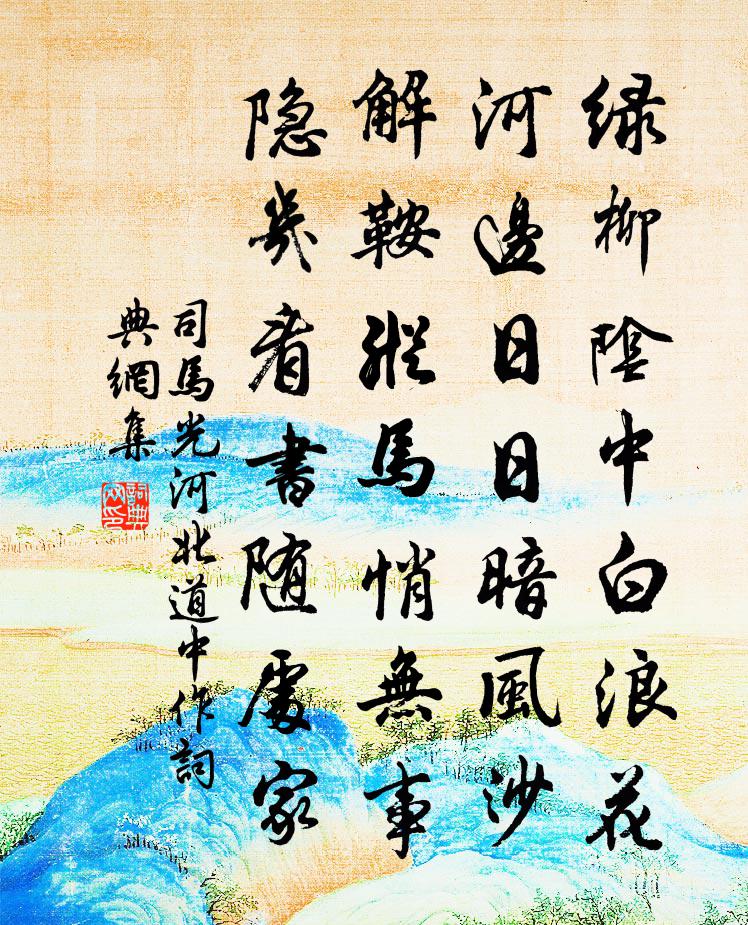 绿柳陰中白浪花
河邊日日暗風沙
解鞍縱馬悄無事
隐幾看書随處家
司馬光河北道中作詞
典網集
詞典网印